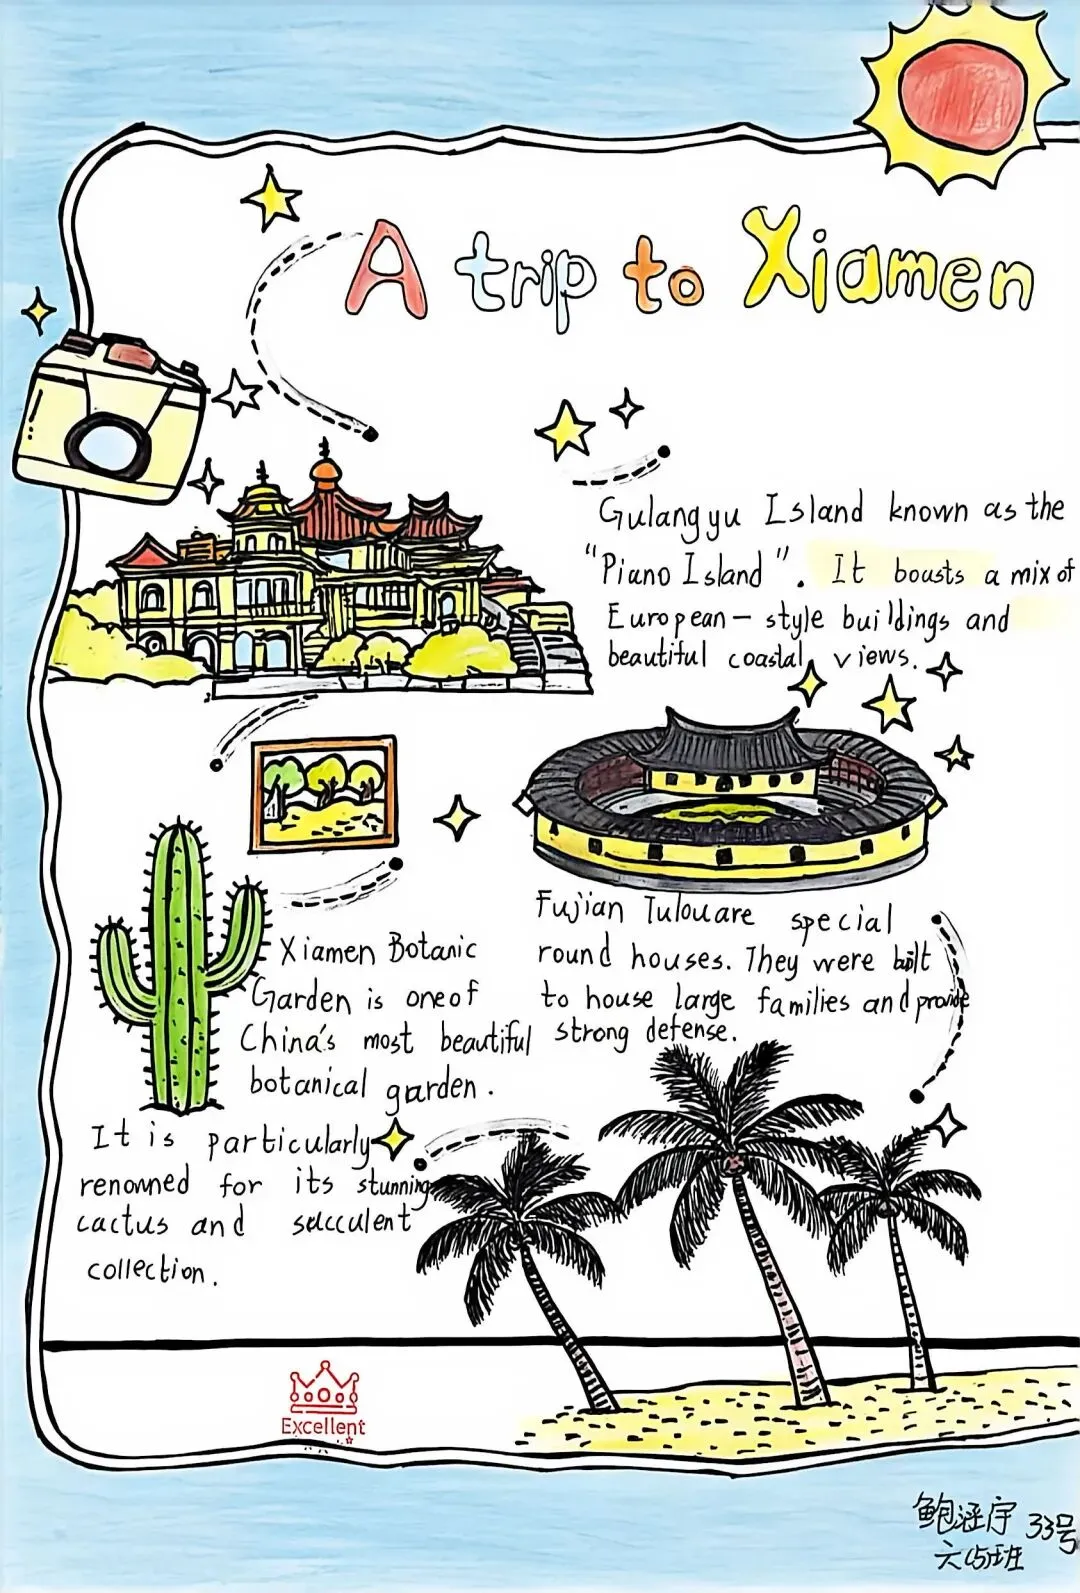 A trip to Xiamen
Gulangyu Island known as the
"Piano Island". It boasts a mix of
European-style buildings and
beautiful coastal views.
Fujian Tulou are special
round houses. They were built
to house large families and provide
strong defense.
Xiamen Botanic
Garden is one of
China's most beautiful
botanical garden.
It is particularly
renowned for its stunning
cactus and succulent
collection.
Excellent
鲍涵宇 33号
六(5)班